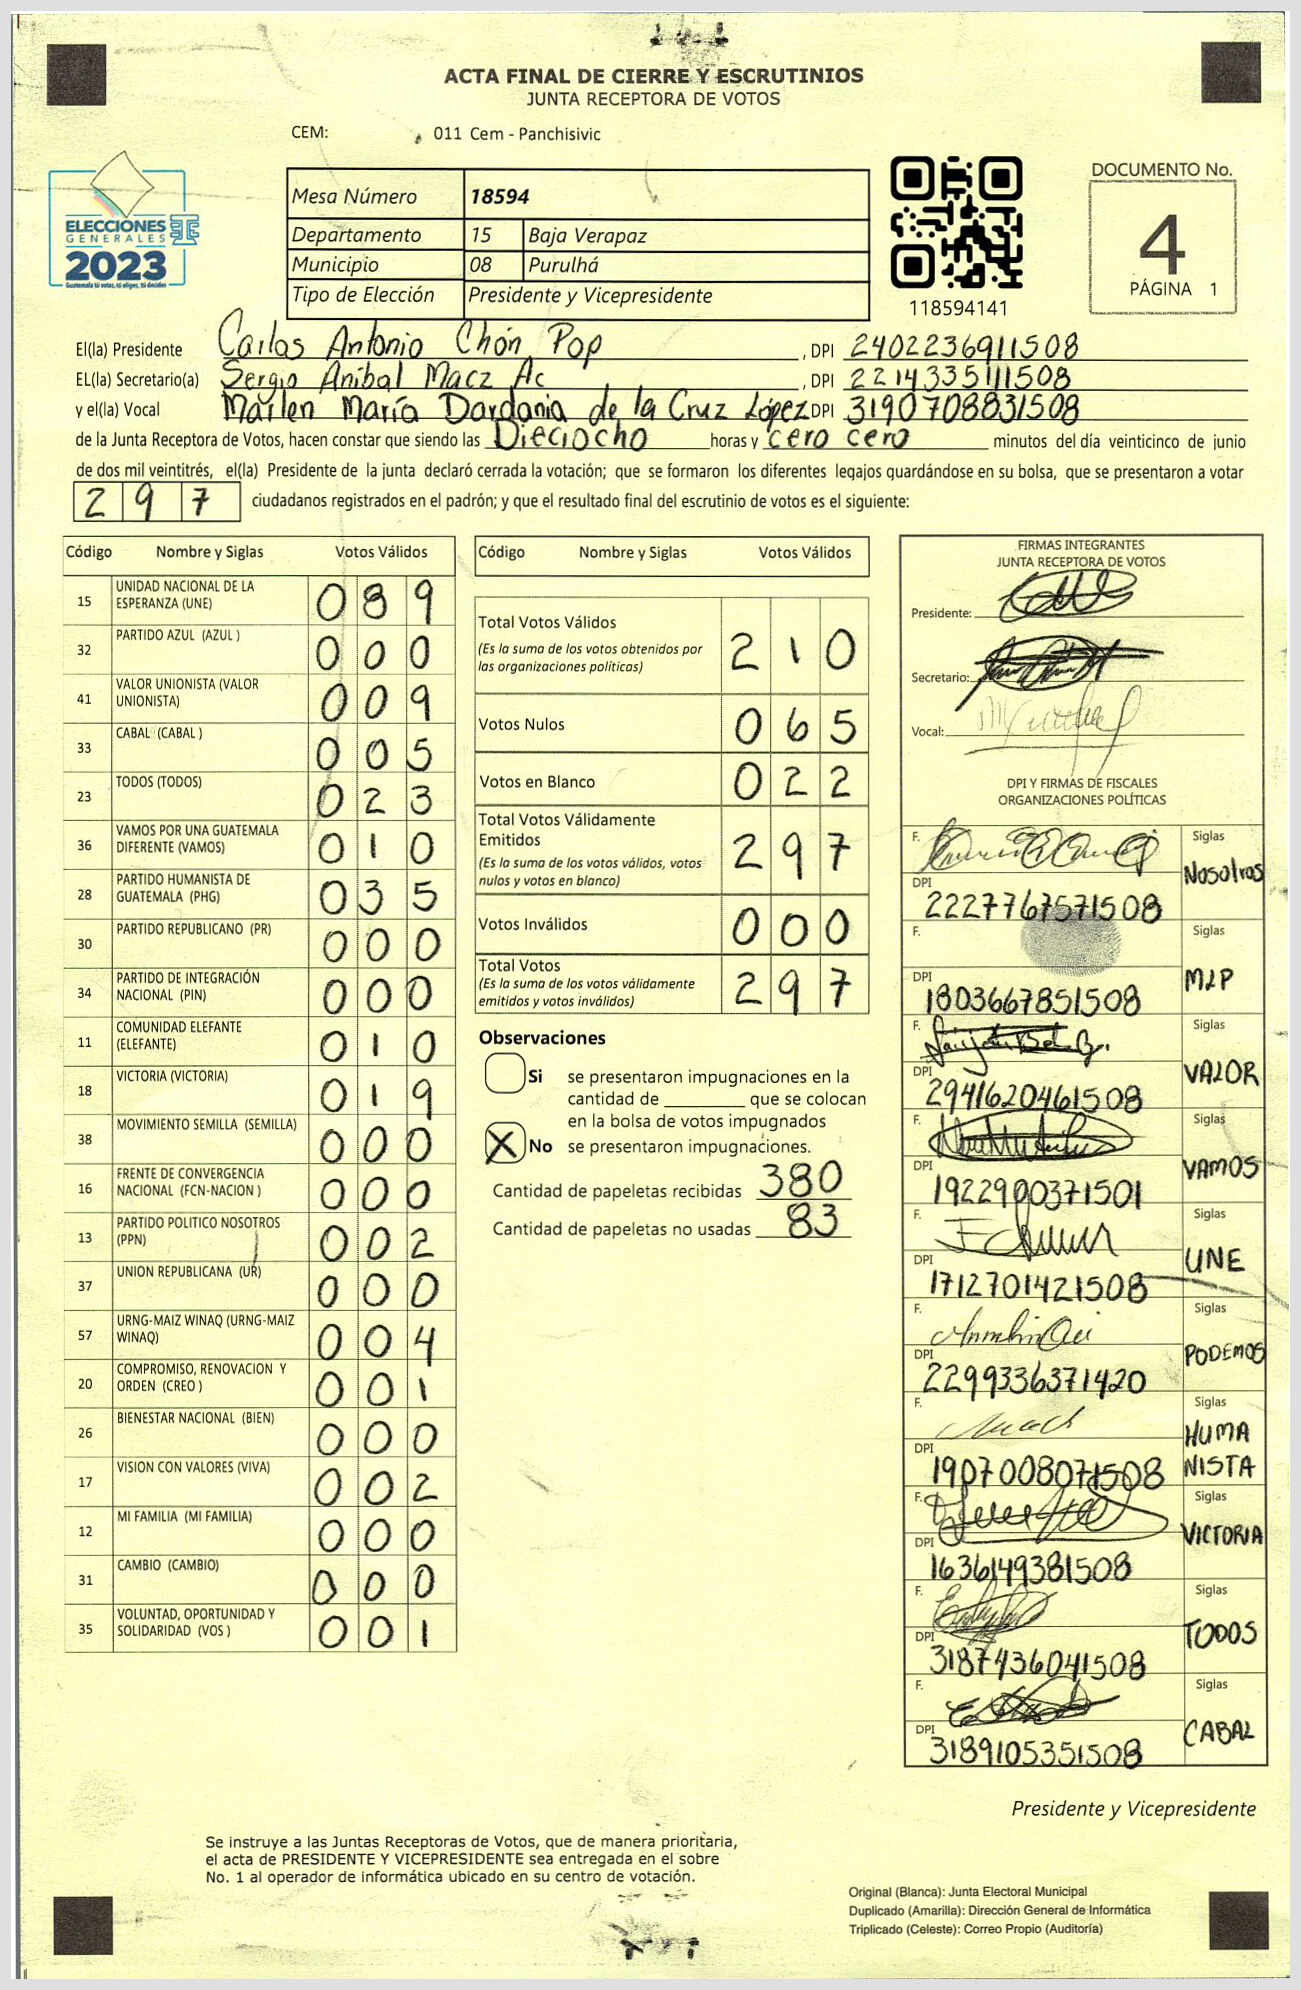 ACTA FINAL DE CIERRE Y ESCRUTINIOS
JUNTA RECEPTORA DE VOTOS
CEM: 011 Cem - Panchisivic
ELECCIONES
GENERALES
2023
Guatemala tú votas, tú eliges, tú decides
Mesa Número 18594
Departamento 15 Baja Verapaz
Municipio 08 Purulhá
Tipo de Elección Presidente y Vicepresidente
118594141
DOCUMENTO No.
4
PÁGINA 1
El(la) Presidente Carlos Antonio Chón Pop , DPI 2402236911508
EL(la) Secretario(a) Sergio Anibal Macz Ac , DPI 2214335111508
y el(la) Vocal Marlen María Dardania de la Cruz López DPI 3190708831508
de la Junta Receptora de Votos, hacen constar que siendo las Dieciocho horas y cero cero minutos del día veinticinco de junio
de dos mil veintitrés, el(la) Presidente de la junta declaró cerrada la votación; que se formaron los diferentes legajos guardándose en su bolsa, que se presentaron a votar
297 ciudadanos registrados en el padrón; y que el resultado final del escrutinio de votos es el siguiente:
Código Nombre y Siglas Votos Válidos
15 UNIDAD NACIONAL DE LA ESPERANZA (UNE) 089
32 PARTIDO AZUL (AZUL ) 000
41 VALOR UNIONISTA (VALOR UNIONISTA) 009
33 CABAL (CABAL ) 005
23 TODOS (TODOS) 023
36 VAMOS POR UNA GUATEMALA DIFERENTE (VAMOS) 010
28 PARTIDO HUMANISTA DE GUATEMALA (PHG) 035
30 PARTIDO REPUBLICANO (PR) 000
34 PARTIDO DE INTEGRACIÓN NACIONAL (PIN) 000
11 COMUNIDAD ELEFANTE (ELEFANTE) 010
18 VICTORIA (VICTORIA) 019
38 MOVIMIENTO SEMILLA (SEMILLA) 000
16 FRENTE DE CONVERGENCIA NACIONAL (FCN-NACION ) 000
13 PARTIDO POLITICO NOSOTROS (PPN) 002
37 UNION REPUBLICANA (UR) 000
57 URNG-MAIZ WINAQ (URNG-MAIZ WINAQ) 004
20 COMPROMISO, RENOVACION Y ORDEN (CREO ) 001
26 BIENESTAR NACIONAL (BIEN) 000
17 VISION CON VALORES (VIVA) 002
12 MI FAMILIA (MI FAMILIA) 000
31 CAMBIO (CAMBIO) 000
35 VOLUNTAD, OPORTUNIDAD Y SOLIDARIDAD (VOS ) 001
Código Nombre y Siglas Votos Válidos
Total Votos Válidos 210
(Es la suma de los votos obtenidos por
las organizaciones políticas)
Votos Nulos 065
Votos en Blanco 022
Total Votos Válidamente
Emitidos 297
(Es la suma de los votos válidos, votos
nulos y votos en blanco)
Votos Inválidos 000
Total Votos 297
(Es la suma de los votos válidamente
emitidos y votos inválidos)
Observaciones
Si se presentaron impugnaciones en la
cantidad de ________ que se colocan
en la bolsa de votos impugnados
X No se presentaron impugnaciones.
Cantidad de papeletas recibidas 380
Cantidad de papeletas no usadas 83
FIRMAS INTEGRANTES
JUNTA RECEPTORA DE VOTOS
Presidente:
Secretario:
Vocal:
DPI Y FIRMAS DE FISCALES
ORGANIZACIONES POLÍTICAS
F. Siglas
DPI 2227767571508 Nosotros
F. Siglas
DPI 1803667851508 MLP
F. Siglas
DPI 2941620461508 VALOR
F. Siglas
DPI 1922900371501 VAMOS
F. Siglas
DPI 1712701421508 UNE
F. Siglas
DPI 2299336371420 PODEMOS
F. Siglas
DPI 1907008071508 HUMA
NISTA
F. Siglas
DPI 1636149381508 VICTORIA
F. Siglas
DPI 3187436041508 TODOS
F. Siglas
DPI 3189105351508 CABAL
Presidente y Vicepresidente
Se instruye a las Juntas Receptoras de Votos, que de manera prioritaria,
el acta de PRESIDENTE Y VICEPRESIDENTE sea entregada en el sobre
No. 1 al operador de informática ubicado en su centro de votación.
Original (Blanca): Junta Electoral Municipal
Duplicado (Amarilla): Dirección General de Informática
Triplicado (Celeste): Correo Propio (Auditoría)